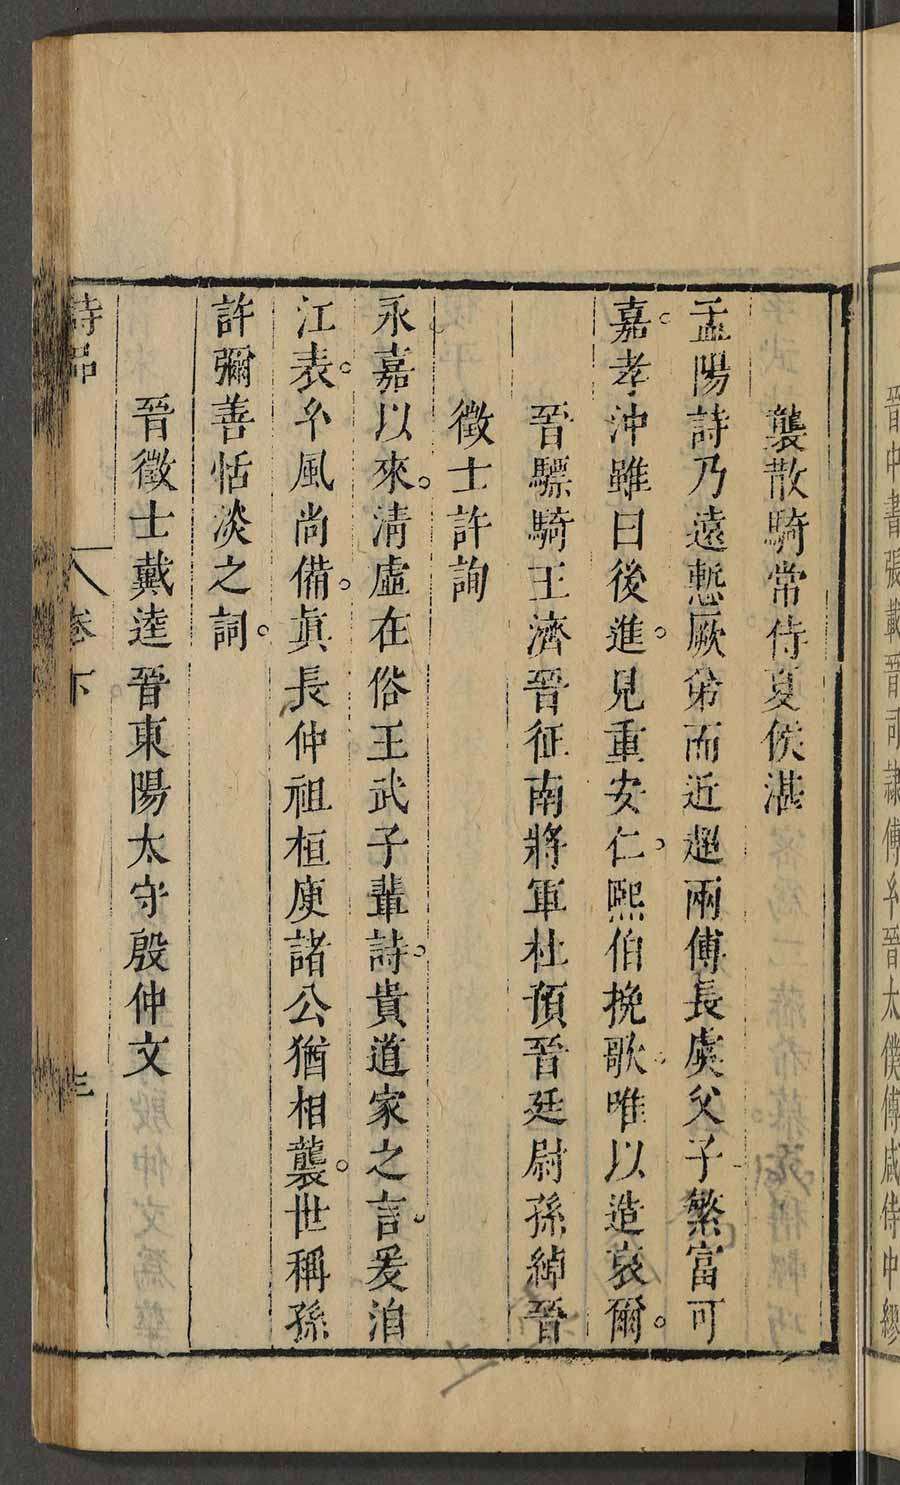 晉中書張載晉司隸傅𤣥晉太僕傅咸侍中繆
襲散騎常侍夏侯湛
孟陽詩乃遠慙厥弟而近超兩傅長虞父子繁富可
嘉。孝沖雖曰後進。見重安仁。熙伯挽歌唯以造哀爾。
晉驃騎王濟晉征南將軍杜預晉廷尉孫綽晉
徵士許詢
永嘉以來。淸虛在俗王武子輩詩。貴道家之言。爰洎
江表。𤣥風尚備。眞長仲祖桓庾諸公猶相襲。世稱孫
許彌善恬淡之詞。
晉徵士戴逵晉東陽太守殷仲文
詩品 卷下